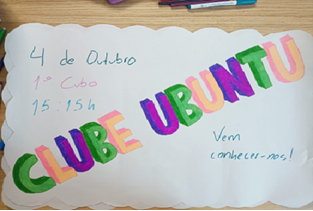 4 de Outubro
1º Cubo
15.15h
CLUBE UBUNTU
Vem
conhecer-nos!